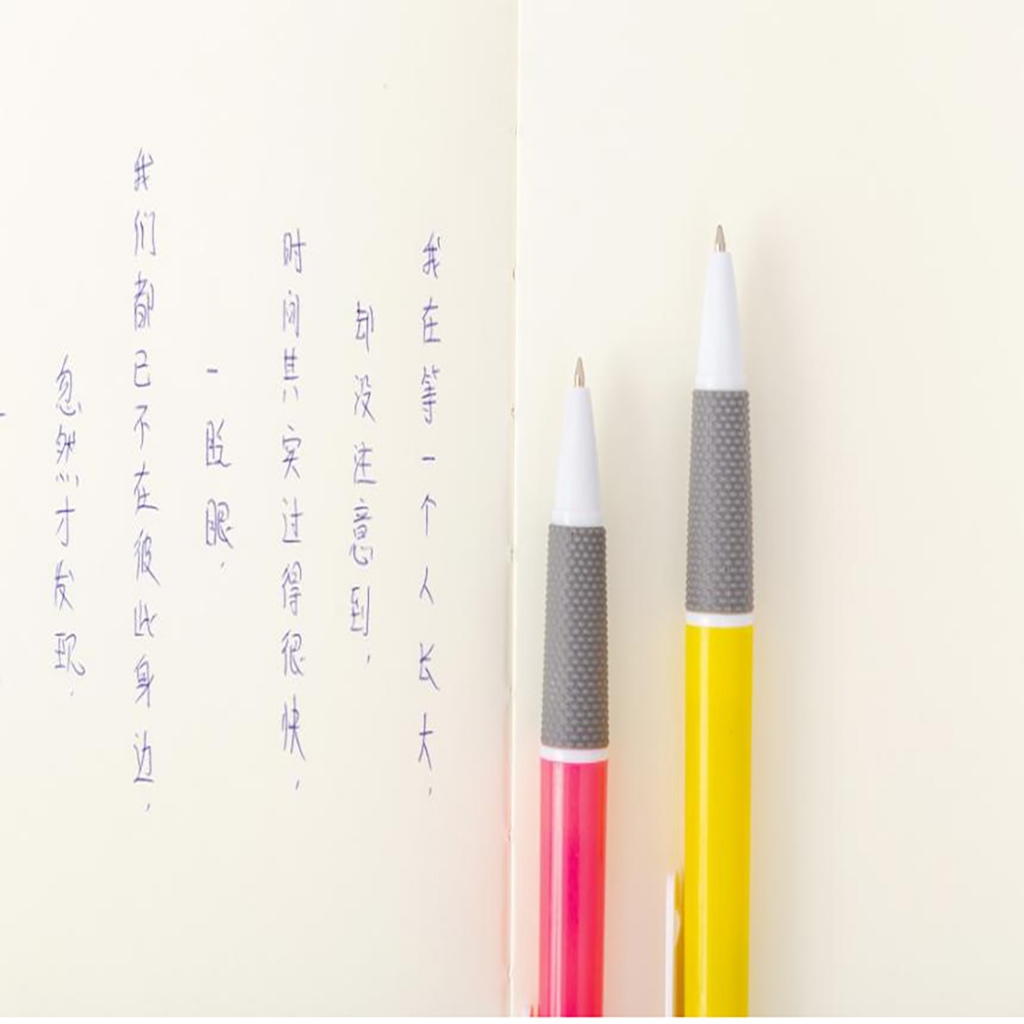 我在等一个人长大，
却没注意到，
时间其实过得很快，
一眨眼，
我们都已不在彼此身边，
忽然才发现，